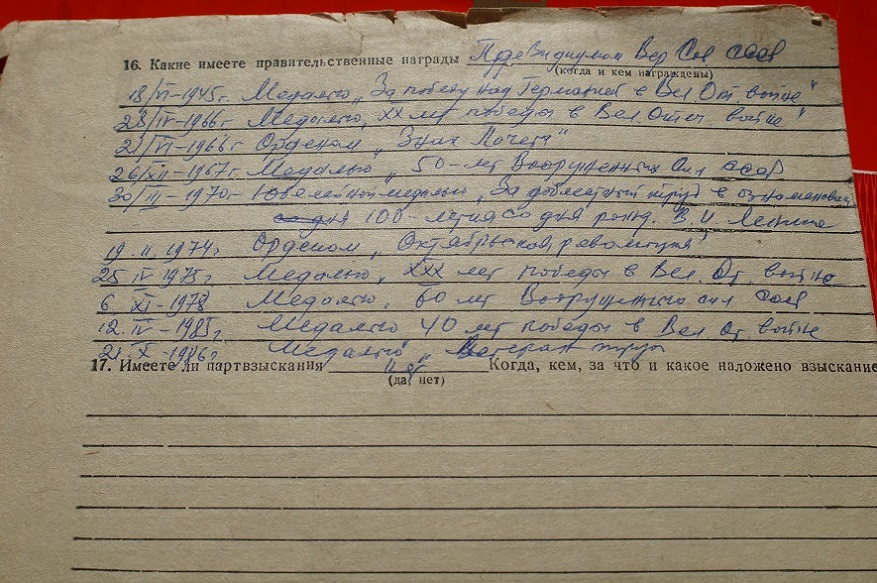 16. Какие имеете правительственные награды Президиумом Вер Сов СССР
(когда и кем награждены)
18/VI-1945г. Медалью „За победу над Германией в Вел. От. войне"
28/IV-1966г. Медалью, ХХ лет победы в Вел. Отеч. войне"
21/VI-1966г Орденом „Знак Почета"
26/XII-1967г. Медалью „50-лет Вооруженных Сил СССР
30/III-1970г. Юбилейной медалью „За доблестный труд в ознаменован
дня 100-летия со дня рожд. В.И. Ленина
19. II. 1974г. Орденом „Октябрьской революции"
25 IV 1975г. Медалью, ХХХ лет победы в Вел. От. войне
6. XI-1978 Медалью, 60 лет Вооруженных сил СССР
12. IV-1985г. Медалью 40 лет победы в Вел От. войне
21. X-1986г. Медалью „Ветеран труда
17. Имеете ли партвзыскания нет Когда, кем, за что и какое наложено взыскание
(да, нет)